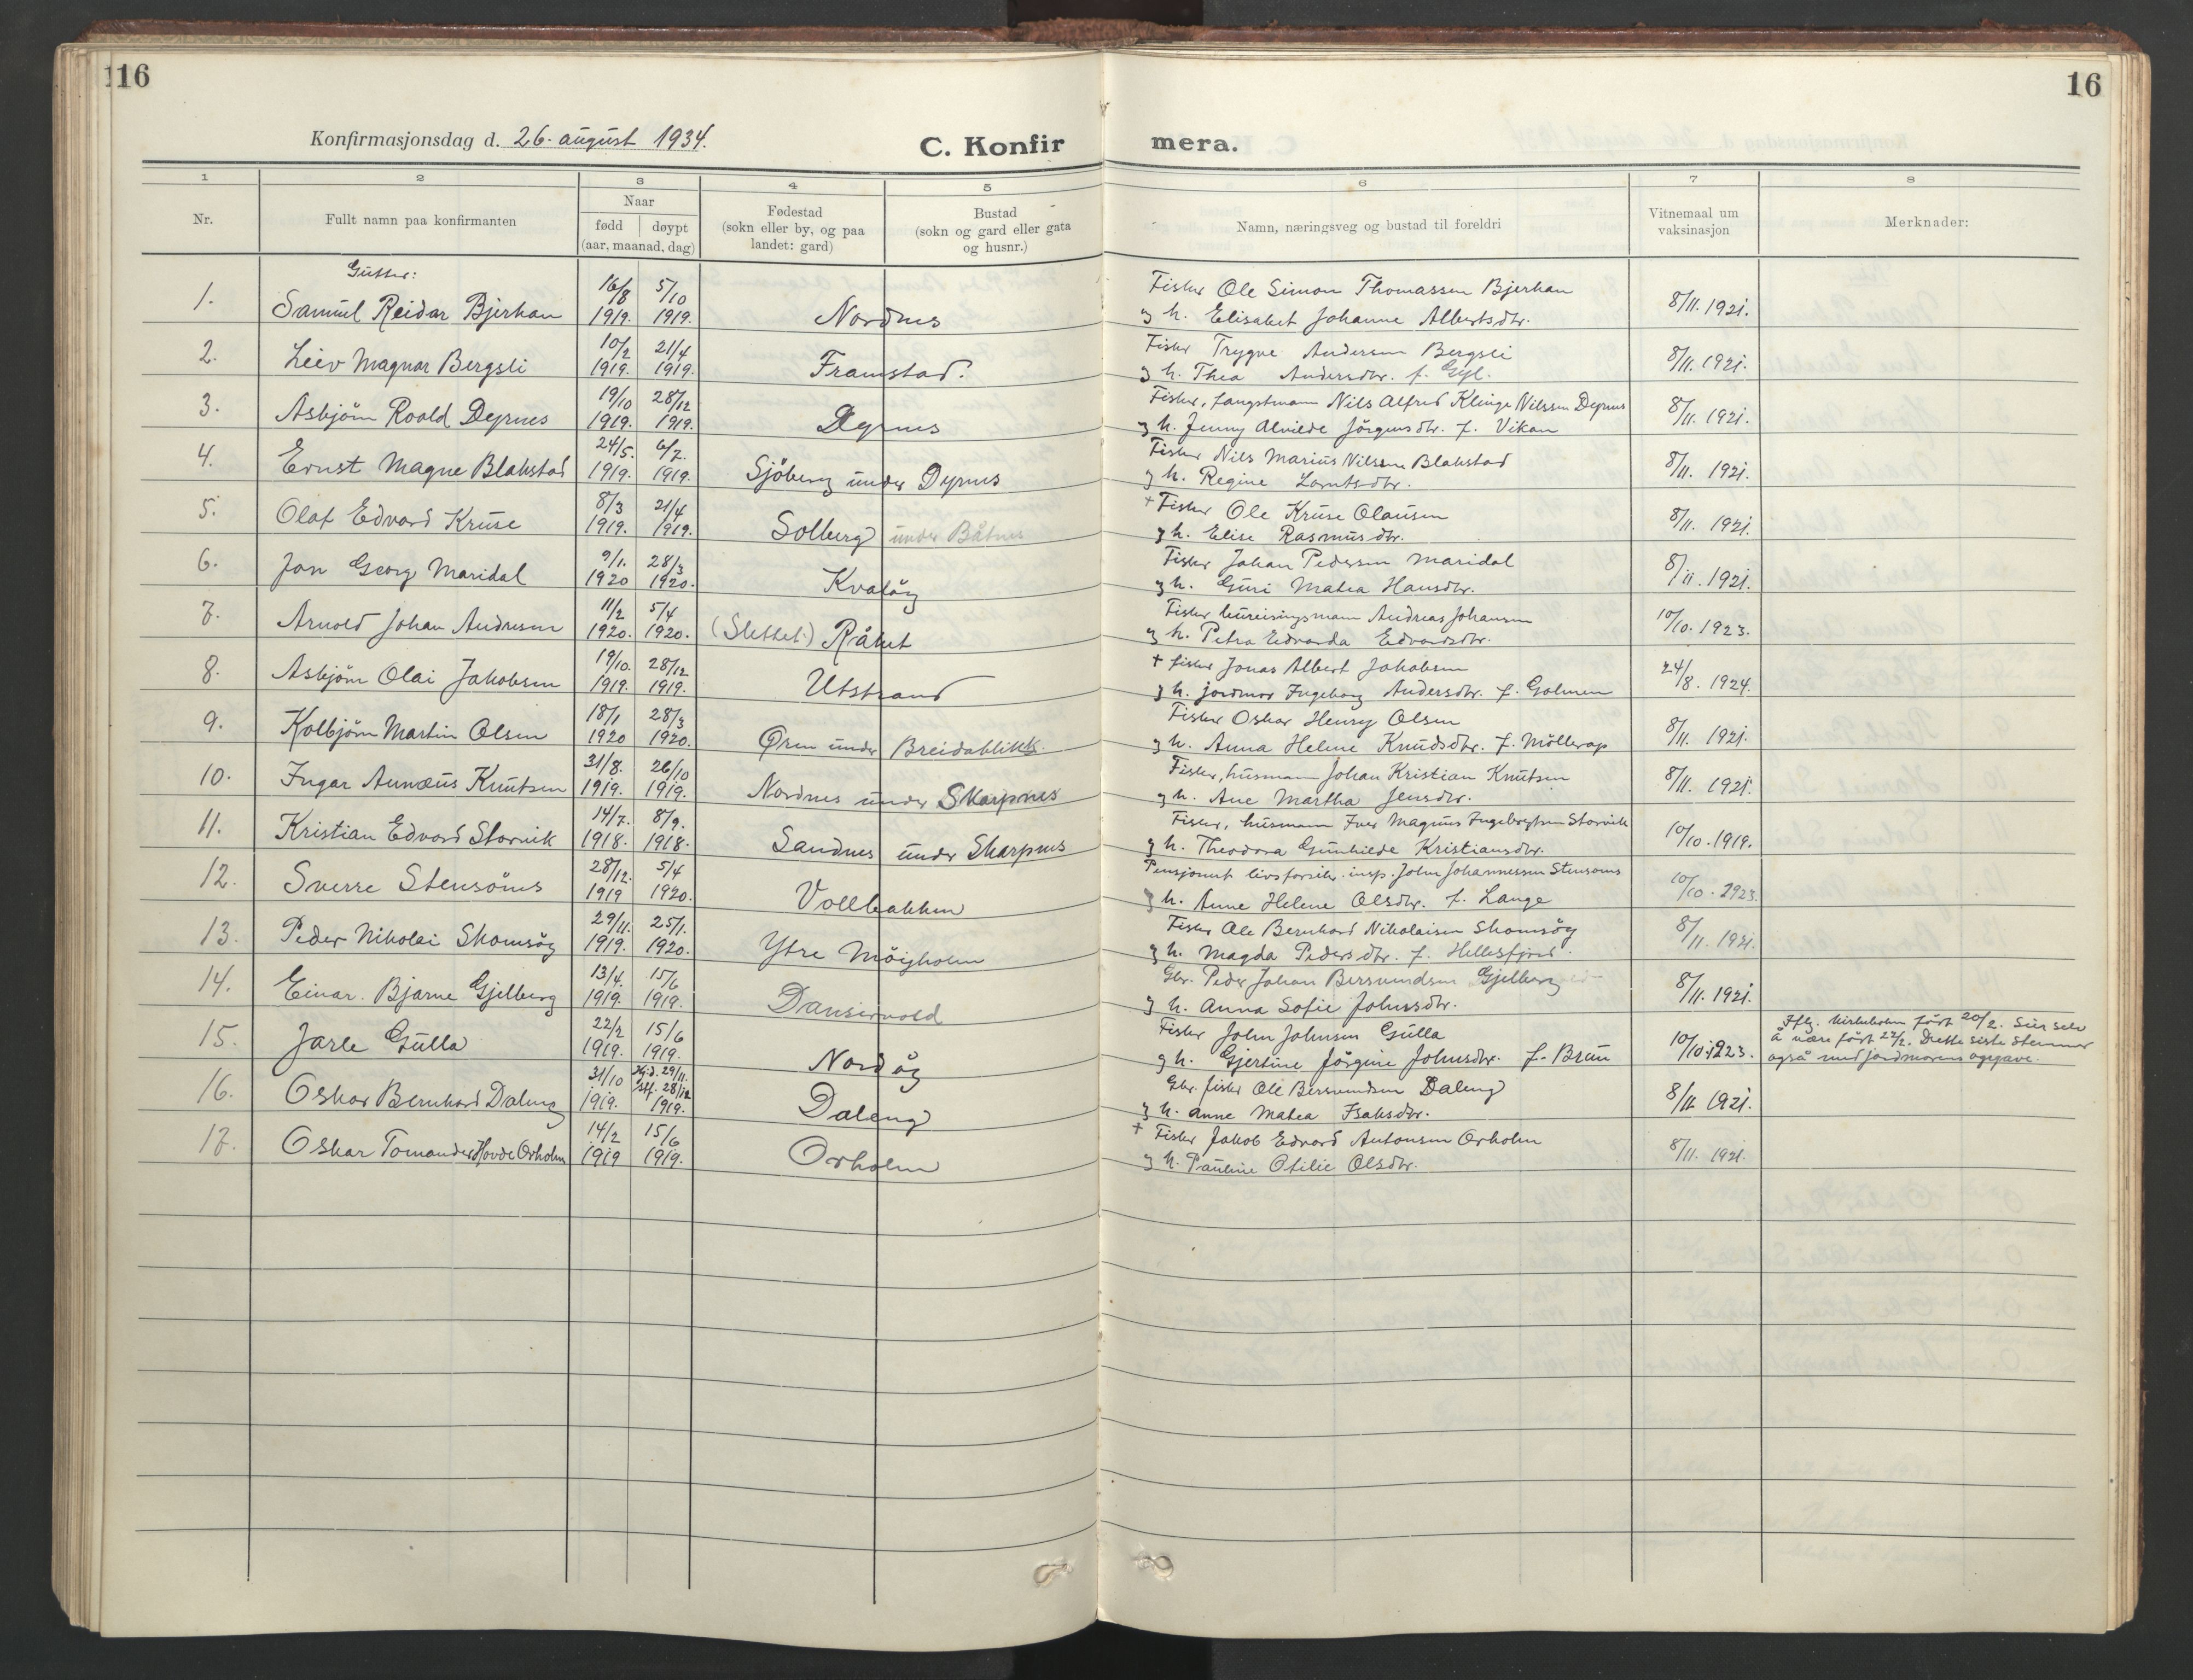 116
16
Konfirmasjonsdag d. 26. august 1934.
C. Konfir
mera.
1
2
3
4
5
6
7
8
Nr.
Fullt namn paa konfirmanten
Naar
fødd
døypt
(aar, maanad, dag)
Fødestad
(sokn eller by, og paa
landet: gard)
Bustad
(sokn og gard eller gata
og husnr.)
Namn, næringsveg og bustad til foreldri
Vitnemaal um
vaksinasjon
Merknader:
Gutter:
1. Samuel Reidar Bjerkan 16/8 1919. 5/10 1919. Nordnes
Fisker Ole Simon Thomassen Bjerkan
og h. Elisabet Johanne Albertsdtr. 8/11. 1921.
2. Leiv Magnar Bergsli 10/2 1919. 21/4 1919. Framstad.
Fisker Trygve Andersen Bergsli
og h. Thea Andersdtr. f. Gyl. 8/11. 1921.
3. Asbjörn Roald Dyrnes 19/10 1919. 28/12 1919. Dyrnes
Fisker, fangstmann Nils Alfred Klinge Nilssen Dyrnes
og h. Jenny Alvilde Jörgensdtr. f. Vikan 8/11. 1921.
4. Ernst Magne Blakstad 24/5. 1919. 6/7. 1919. Sjöberg under Dyrnes
Fisker Nils Marius Nilssen Blakstad
og h. Regine Lorntsdtr. 8/11. 1921.
5. Olaf Edvard Kruse 8/3 1919. 21/4 1919. Solberg under Båtnes
+ Fisker Ole Kruse Olausen
og h. Elise Rasmusdtr. 8/11. 1921.
6. Jon Georg Maridal 9/1. 1920 28/3 1920. Kvalöy
Fisker Johan Pedersen Maridal
og h. Guri Matea Hansdtr. 8/11. 1921.
7. Arnold Johan Andresen 11/2 1920. 5/4 1920. (Slettet.) Råket
Fisker bureisingsmann Andreas Johansen
og h. Petra Edvarda Edvardsdtr. 10/10. 1923.
8. Asbjörn Olai Jakobsen 19/10. 1919. 28/12 1919. Utstrand
+ fisker Jonas Albert Jakobsen
og h. jordmor Ingeborg Andersdtr. f. Golmen 24/8. 1924.
9. Kolbjörn Martin Olsen 18/1 1920 28/3 1920. Øren under Breidablikk.
Fisker Oskar Henry Olsen
og h. Anna Helene Knudsdtr. f. Möllerop 8/11. 1921.
10. Ingar Aunæus Knutsen 31/8. 1919. 26/10 1919. Nordnes under Skarpnes
Fisker, husmann Johan Kristian Knutsen
og h. Ane Martha Jensdtr. 8/11. 1921.
11. Kristian Edvard Storvik 14/7. 1918. 8/9. 1918. Sandnes under Skarpnes
Fisker, husmann Iver Magnus Ingebrigtsen Storvik
og h. Theodora Gunhilde Kristiansdtr. 10/10. 1919.
12. Sverre Stensönes 28/12. 1919 5/4 1920. Vollbakken
Pensjonert livsforsikr. insp. John Johannessen Stensönes
og h. Anne Helene Olsdtr. f. Lange 10/10. 1923.
13. Peder Nikolai Skomsöy 29/11. 1919. 25/1. 1920. Ytre Möyholen
Fisker Ole Bernhard Nikolaisen Skomsöy
og h. Magda Pedersdtr. f. Hellesfjord. 8/11. 1921.
14. Einar Bjarne Gjelberg 13/4. 1919. 15/6 1919.
Gbr. Peder Johan Bersvendsen Gjelberg
og h. Anna Sofie Johnsdtr. 8/11. 1921.
15. Jarle Gulla 22/2 1919. 15/6 1919. Nordöy
Fisker John Johnsen Gulla
og h. Gjertine Jörgine Johnsdtr. f. Brun 10/10. 1923.
Iflg. kirkeboken född 20/2. Sier selv
å være född 22/2. Dette siste stemmer
også med jordmorens oppgave.
16. Oskar Bernhard Daleng 31/10 1919. Hj.d. 29/11. Stf. 28/12 1919. Daleng
Gbr. fisker Ole Bersvendsen Daleng
og h. Anne Matea Isaksdtr. 8/11 1921.
17. Oskar Tomander Hovde Orholm 14/2 1919 15/6 1919. Orholm
+ Fisker Jakob Edvard Antonsen Orholm
og h. Pauline Otilie Olsdtr. 8/11. 1921.